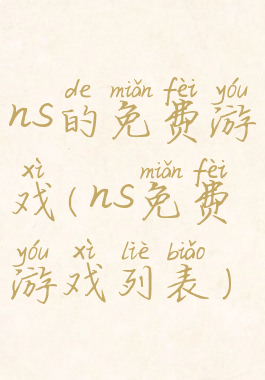 de miǎn fèi yóu
ns的免费游
xì miǎn fèi
戏(ns免费
yóu xì liè biǎo
游戏列表)